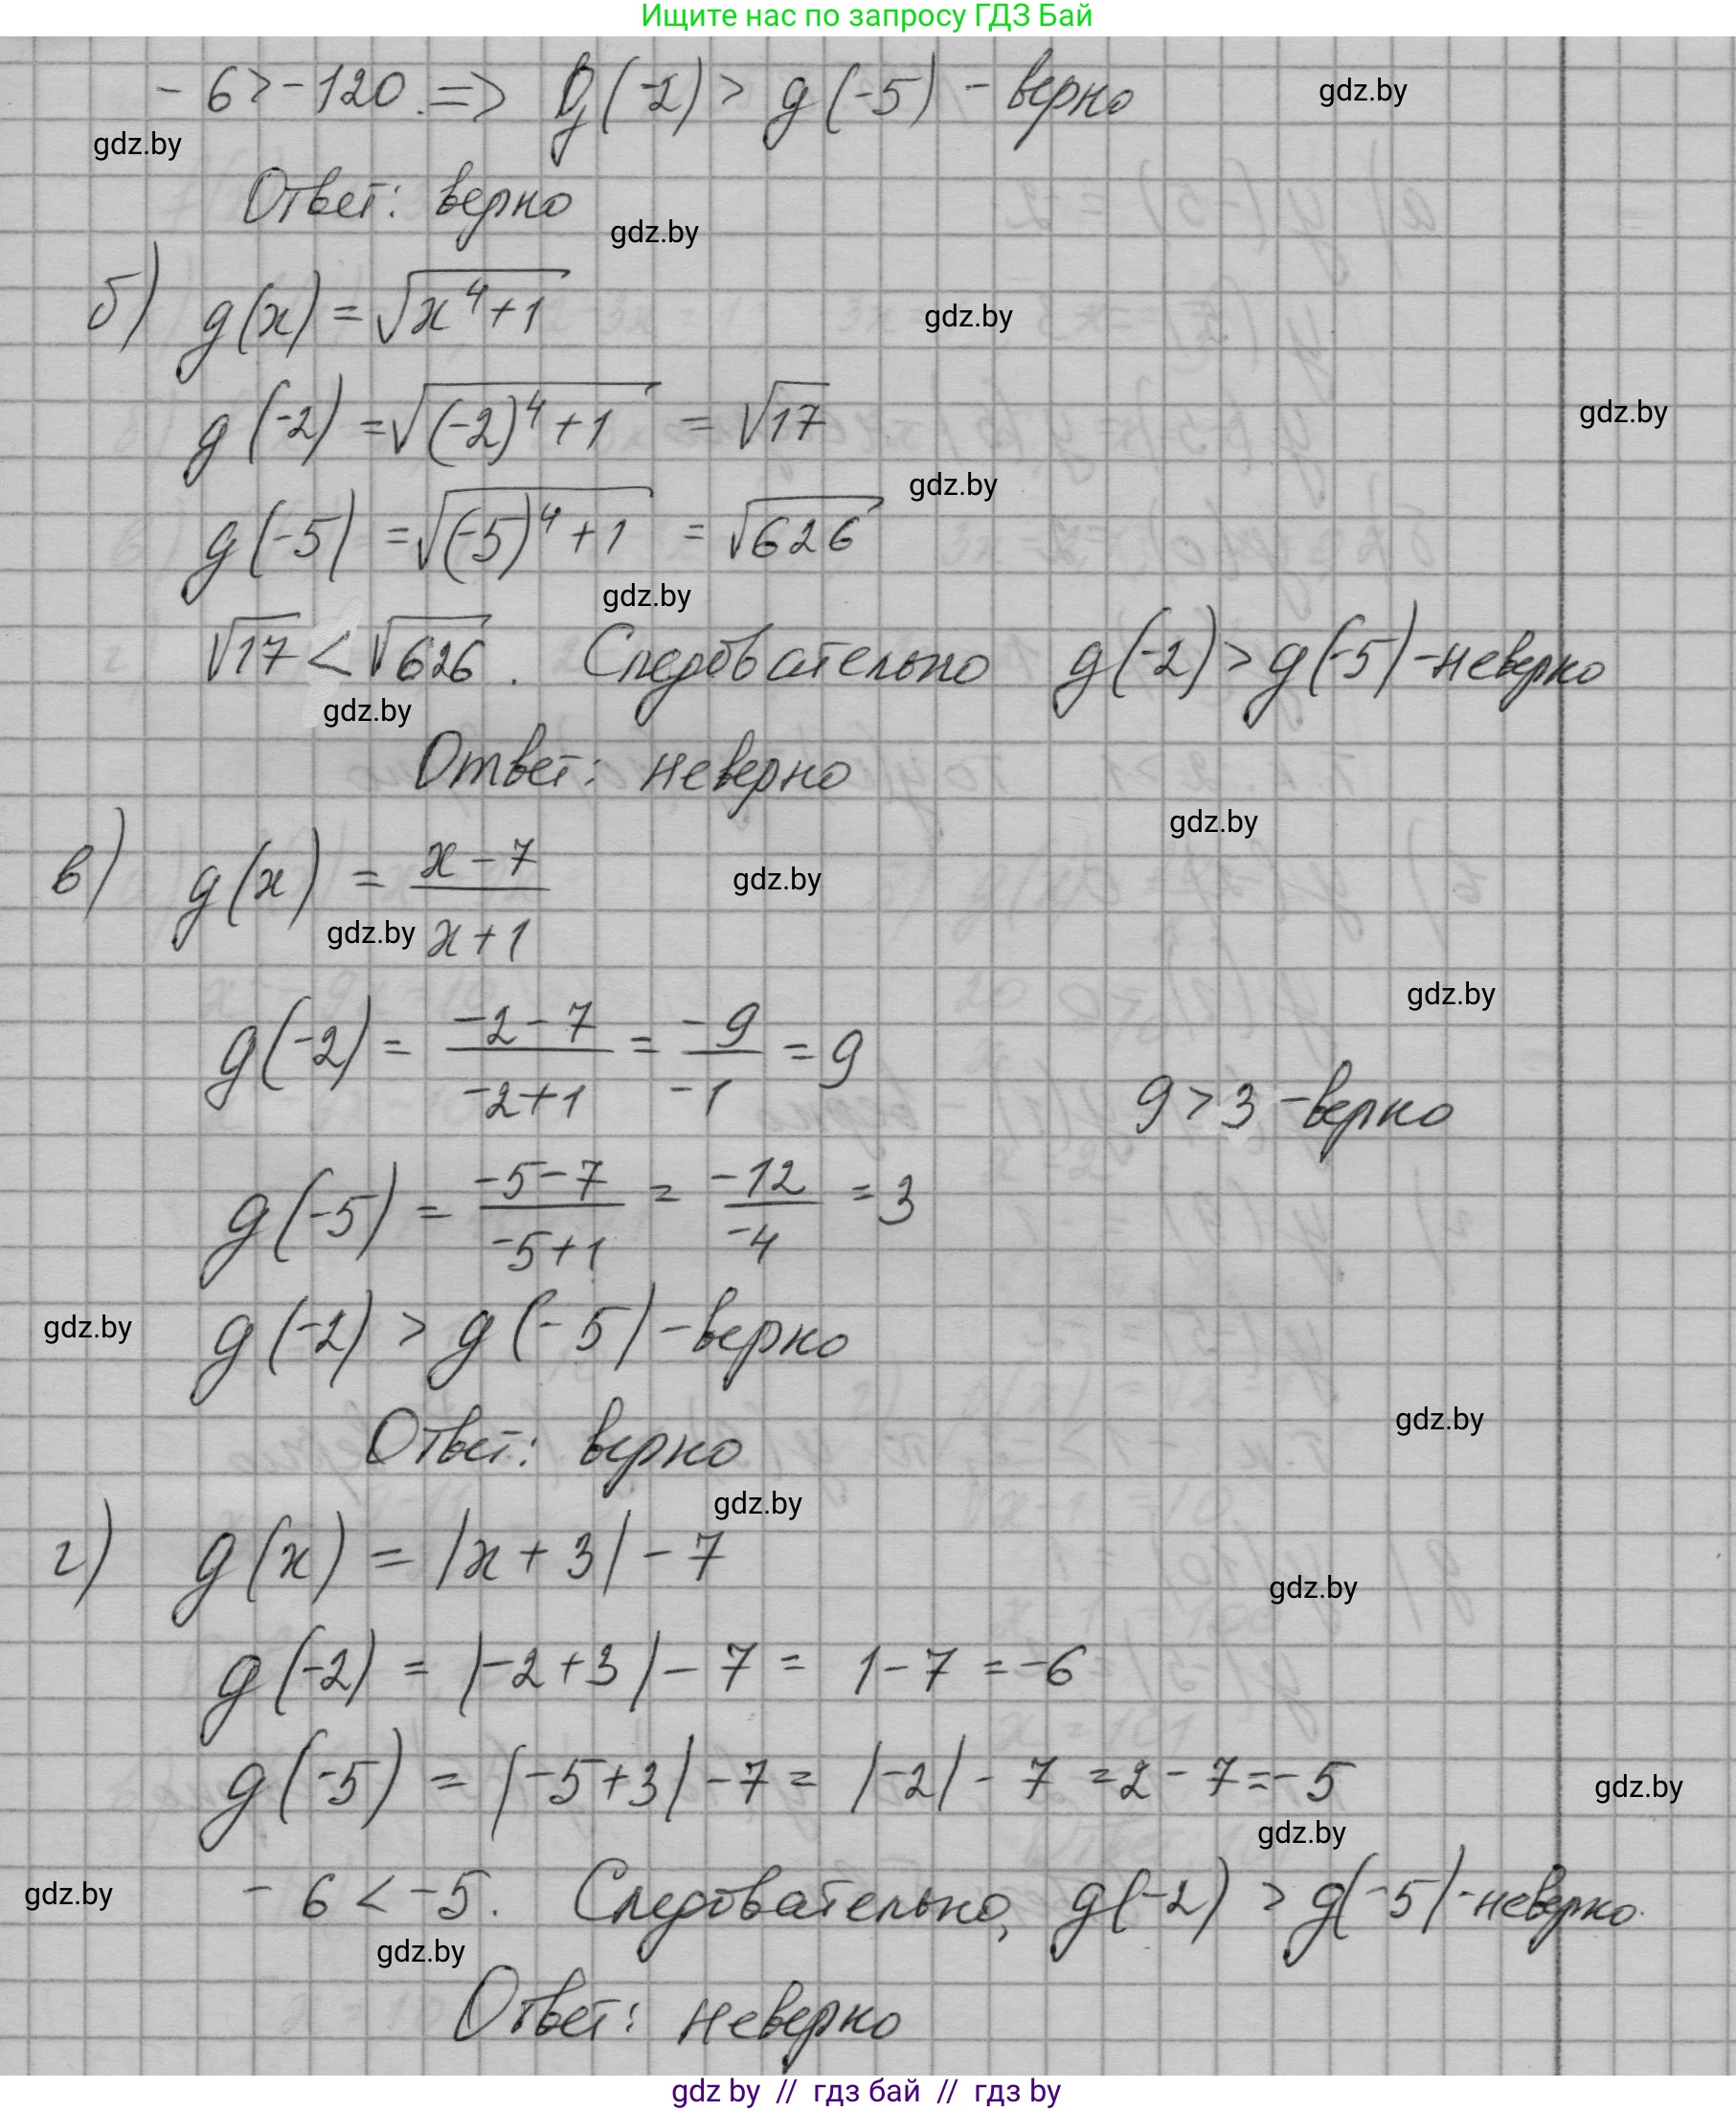 Ищите нас по запросу ГДЗ Бай
- 6 > - 120. => g(-2) > g(-5) - верно
gdz.by
gdz.by
Ответ: верно
gdz.by
б) g(x) = √(x⁴+1)
gdz.by
g(-2) = √((-2)⁴+1) = √17
gdz.by
gdz.by
g(-5) = √((-5)⁴+1) = √626
gdz.by
√17 < √626. Следовательно g(-2) > g(-5) - неверно
gdz.by
Ответ: неверно
gdz.by
в) g(x) = (x-7)/(x+1)
gdz.by
gdz.by
gdz.by
g(-2) = (-2-7)/(-2+1) = -9/-1 = 9
9 > 3 - верно
g(-5) = (-5-7)/(-5+1) = -12/-4 = 3
gdz.by
g(-2) > g(-5) - верно
gdz.by
Ответ: верно
gdz.by
г) g(x) = |x+3| - 7
gdz.by
g(-2) = |-2+3| - 7 = 1 - 7 = -6
g(-5) = |-5+3| - 7 = |-2| - 7 = 2 - 7 = -5
gdz.by
gdz.by
gdz.by
- 6 < -5. Следовательно, g(-2) > g(-5) - неверно.
gdz.by
Ответ: неверно
gdz by // гдз бай // гдз by